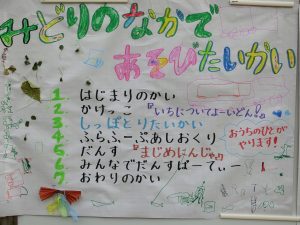 みどりのなかで
あそびたいかい
1 はじまりのかい
2 かけっこ『いちについてよーいどん!』
3 しっぽとりたいかい
4 ふらふーぷあしおくり
5 だんす『まじめにんじゃ』
6 みんなでだんすぱーてぃー
7 おわりのかい
おうちのひとが
やります!